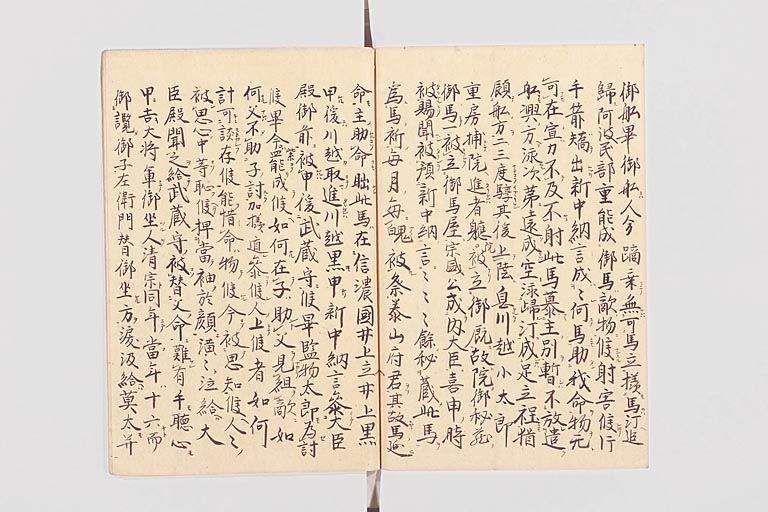 御船畢御船人多蹈乗無可馬立様馬汀追
歸阿波民部重能成御馬敵物候射害候行
千箭矯出新中納言成々何馬助我命物元
可在宣力不及不射此馬慕主別暫不放遣
船澳方泳次第遠成空泳歸汀成足立程猶
顧船方二三度騂其後上陸息川越小太郎
重房捕院進者聽被立御厩故院御秘蔵
御馬一被立御馬屋宗國公成内大臣喜申時
被賜聞被預新中納言々々々餘秘蔵此馬
為馬祈毎月毎魄被祭泰山府君其故馬延
命主助命此馬在信濃國井上立井上黒
申後川越取進川越黒申新中納言参大臣
殿御前被申後武蔵守候畢監物太郎為討
候畢今無能成候如何在子助父見組敵如
何父不助子討加様逃参候人上候者如何
計可談存候能惜命物候今被思知候人々
被思心中等恥候押當袖於顔潸々泣給大
臣殿聞之給武蔵守被替父命難有手聽心
甲吉大将軍御坐人清宗同年當年十六而
御讒御子左衛門督御坐方涙汲給莫太并